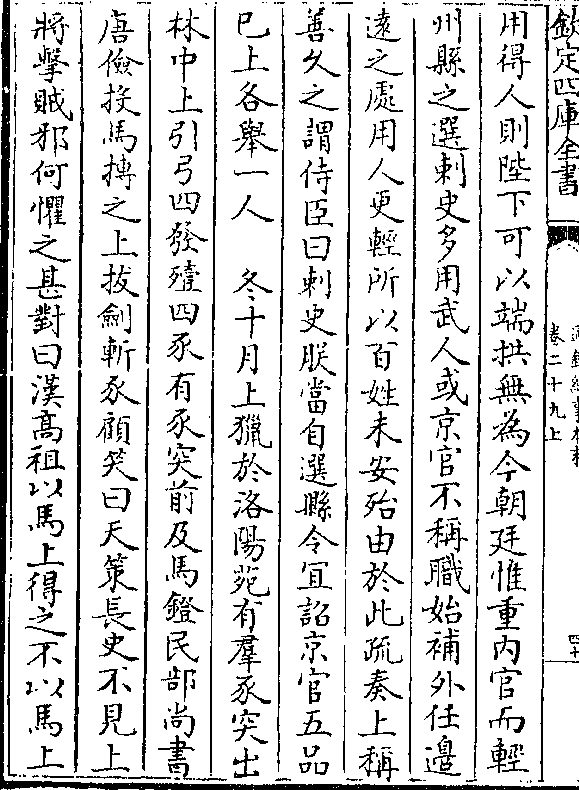 欽定四庫全書
通鑑紀事本末
卷二十九上
四十
用得人則陛下可以端拱無為今朝廷惟重内官而輕
州縣之選刺史多用武人或京官不稱職始補外任邉
逺之處用人更輕所以百姓未安殆由於此疏奏上稱
善久之謂侍臣曰刺史朕當自選縣令宜詔京官五品
已上各舉一人　冬十月上獵於洛陽苑有羣豕突出
林中上引弓四發殪四豕有豕突前及馬鐙民部尚書
唐儉投馬搏之上拔劍斬豕顧笑曰天策長史不見上
將擊賊邪何懼之甚對曰漢髙祖以馬上得之不以馬上